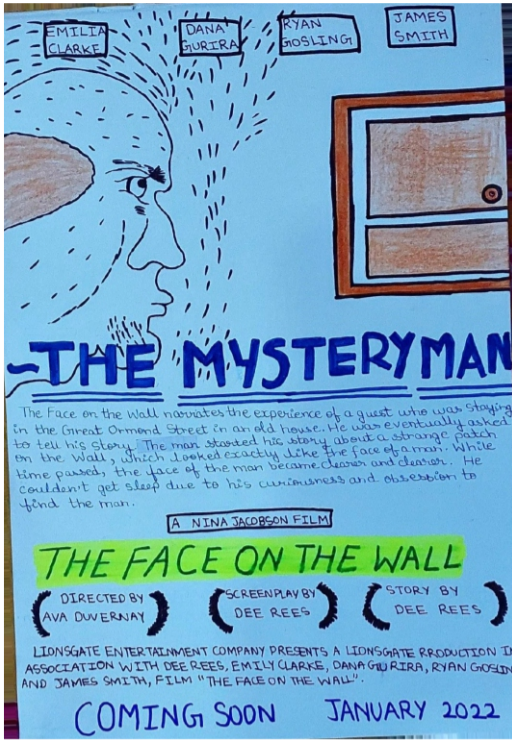 EMILIA
CLARKE
DANA
GURIRA
RYAN
GOSLING
JAMES
SMITH
~THE MYSTERY MAN
The Face on the Wall narrates the experience of a guest who was staying
in the Great Ormond Street in an old house. He was eventually asked
to tell his story. The man started his story about a strange patch
on the Wall, which looked exactly like the face of a man. While
time passed, the face of the man became clearer and clearer. He
couldn't get sleep due to his curiousness and obsession to
find the man.
A NINA JACOBSON FILM
THE FACE ON THE WALL
DIRECTED BY
AVA DUVERNAY
SCREENPLAY BY
DEE REES
STORY BY
DEE REES
LIONSGATE ENTERTAINMENT COMPANY PRESENTS A LIONSGATE PRODUCTION IN
ASSOCIATION WITH DEE REES, EMILY CLARKE, DANA GURIRA, RYAN GOSLIN
AND JAMES SMITH, FILM "THE FACE ON THE WALL".
COMING SOON JANUARY 2022